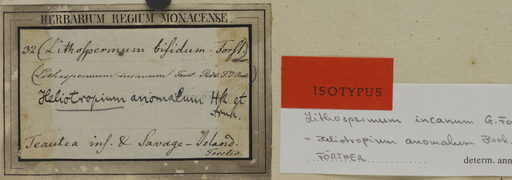 HERBARIUM REGIUM MONACENSE.
32 (Lithospermum bifidum Forst.
(Lithospermum incanum Forst.
Heliotropium anomalum Hk. et
Arnk.
Teautea ins. & Savage-Island.
Forster.
ISOTYPUS
Lithospermum incanum G. Fo
= Heliotropium anomalum Hook.
FÖRTHER
determ. ann